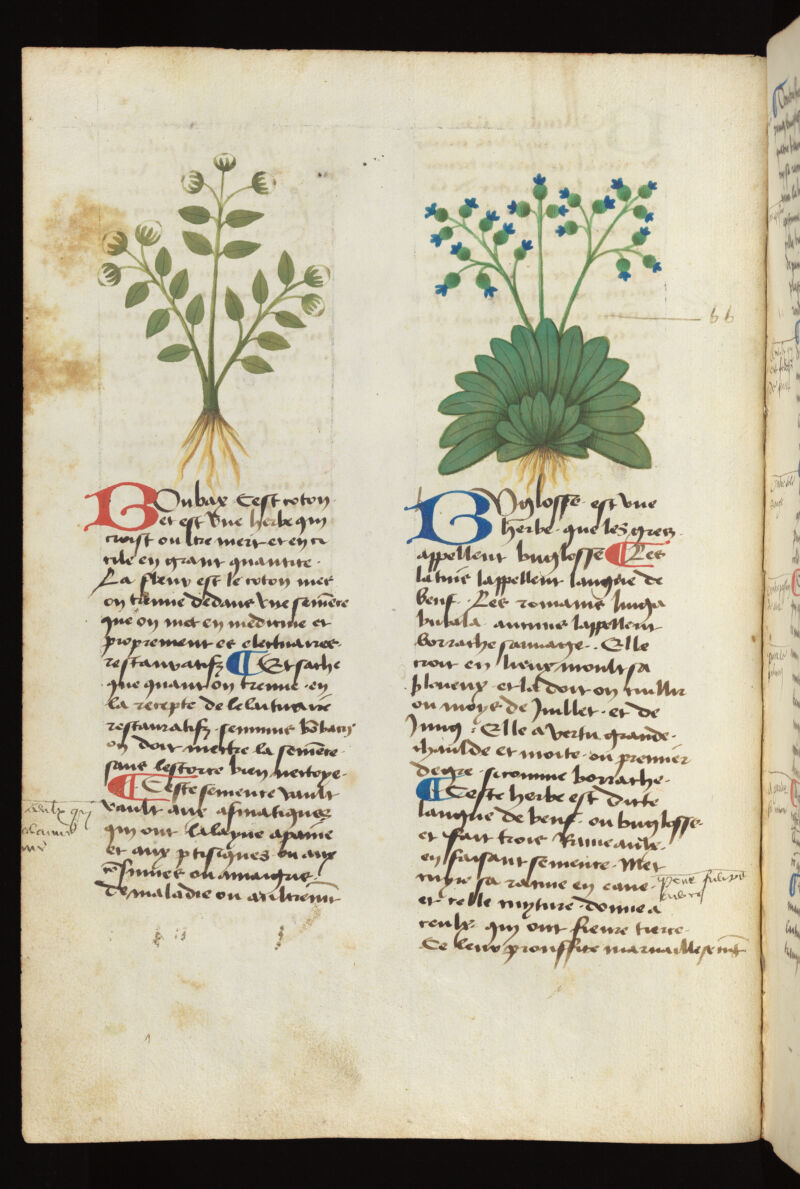 Bonbax Cest coton
et est vne herbe qui
croist oultre mer et en ci
cile en grant quantite ·
La fleur est le coton mes
on treuue dedans vne semēce
que on met en medicine et
proprement es electuaires
restauratifz ¶ Et sache
que quant on treuue · en
la recepte de lelectuaire
restauratifz · seminis
on doit mettre la semēce
sans lescorce bien nettoye ·
¶ Ceste semence vault
vault aux asmatiques
qui ont lalayne a paine
et aux ptisiques ou aux
ou amaigris
de maladie ou aultremt
Buglosse · est vne
herbe · que les grecz
appellent buglosse ¶ Les
latins lappellent langue de
beuf · Les romains lingua
bubala aucuns lappellent
borrache sauuage · Elle
croit en lieux moult sa
bloneux · et la doit on cuillir
ou moys de Juillet · et de
Juing · Elle a vertu grande ·
chaulde et moite · ou premier
degre · si comme borrache ·
¶ Ceste herbe est dicte
langue de beuf · ou buglosse ·
et fait trois Rameaulx ·
en faisant semence · Met
cuyre sa racine en eaue ·
et celle cuyture · donne a
ceulx · qui ont fieure tierce ·
Ce leur prouffite maruailleusemt
66